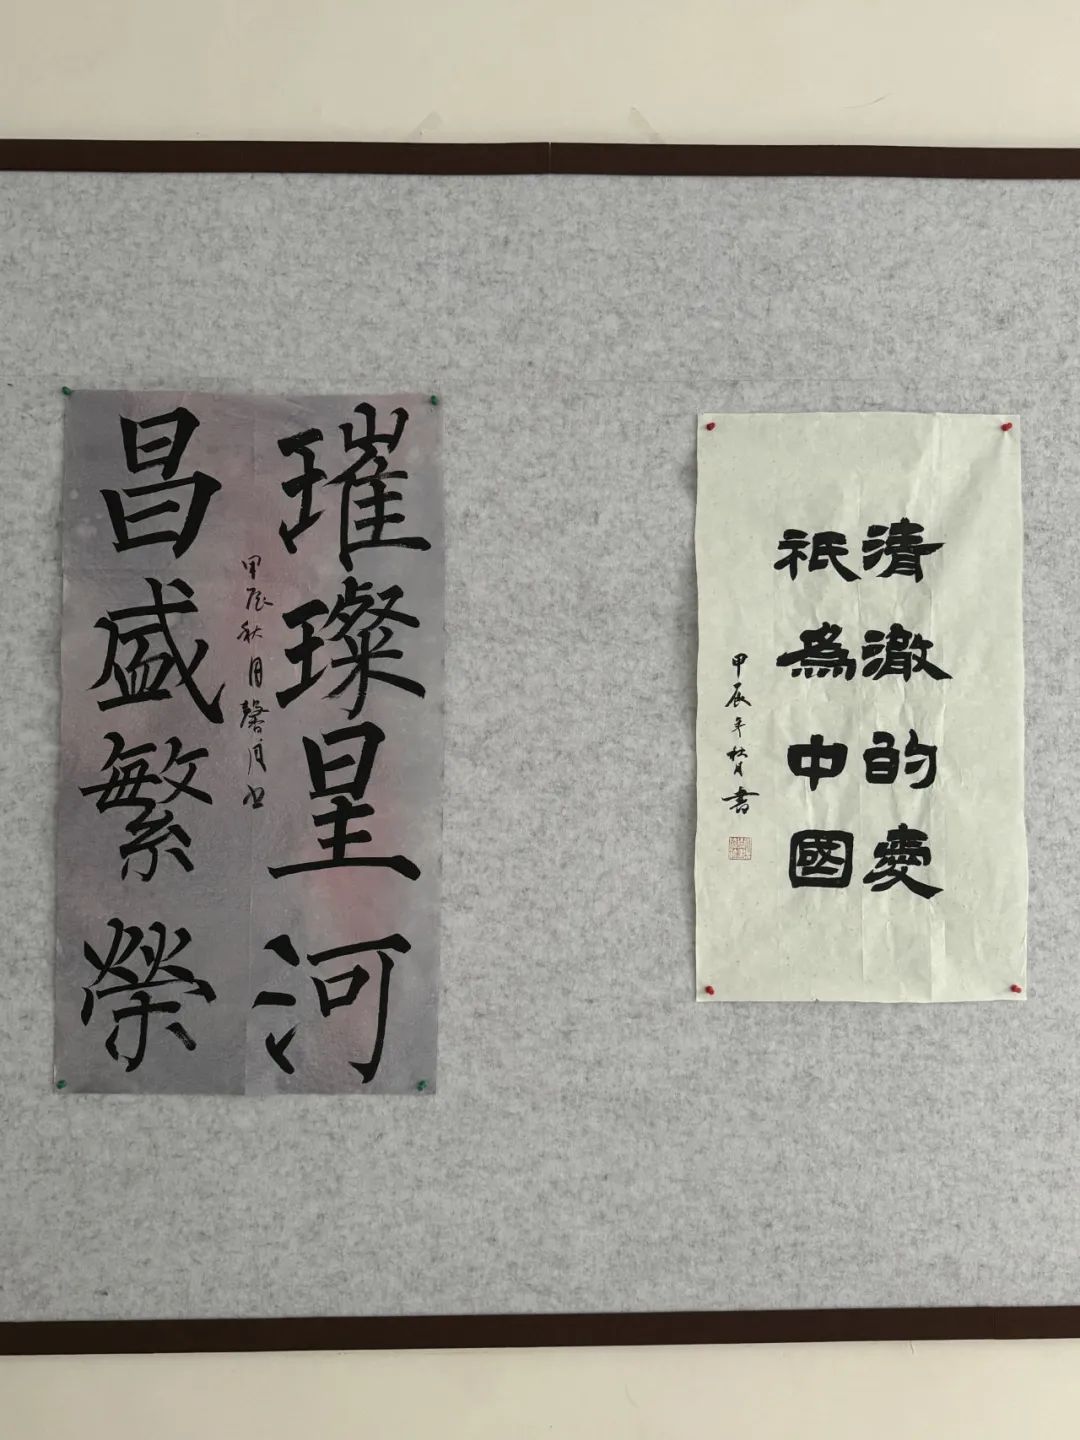 璀璨星河
昌盛繁榮
甲辰秋月馨月书
清澈的愛
祇為中國
甲辰年秋月書